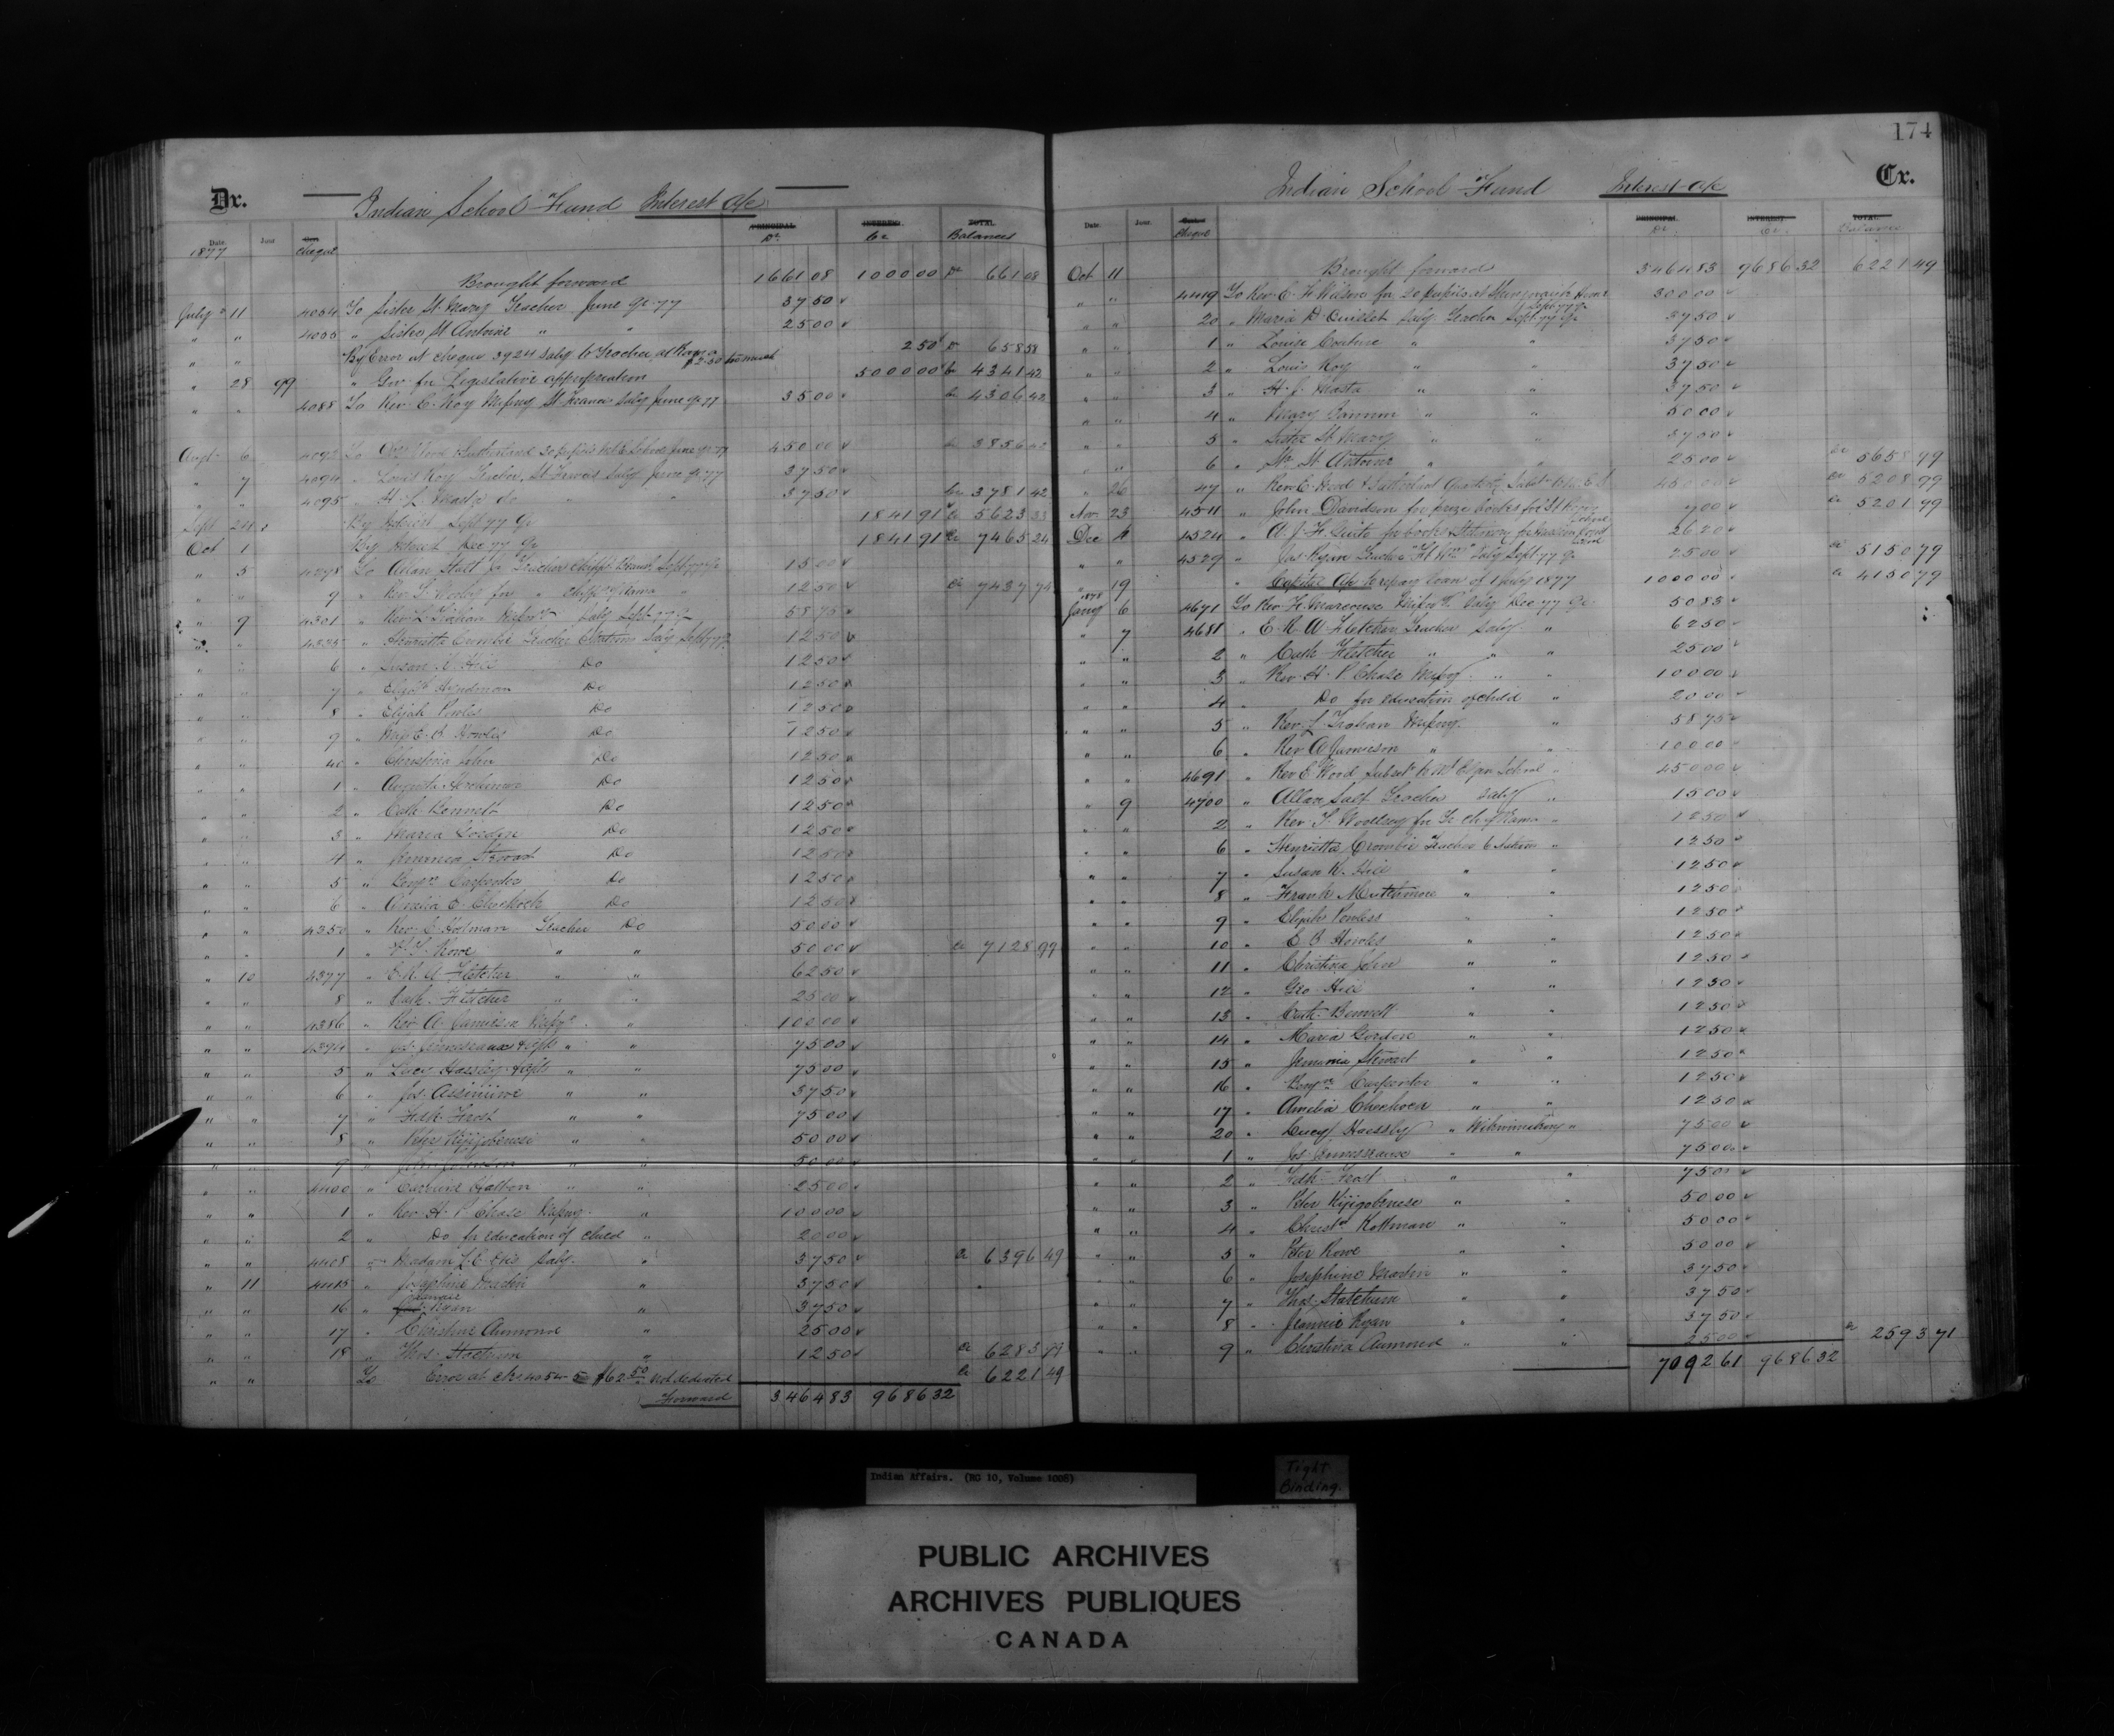 174
Dr.
Indian School Fund Interest a/c
Date. Jour. Cheque PRINCIPAL Dr. INTEREST Cr TOTAL Balances
1877
Brought forward 1661 08 1000 00 Dr 661 08
July 11 4034 To Sister St Mary Teacher June qr 77 37 50
" " 4035 " Sister St Antoine " " 25 00
" " By Error at cheque 3924 Saly to Teacher at $2.50 too much 2 50 Dr 658 58
" 28 99 " Gov. for Legislative appropriation 5000 00 Cr 4341 42
" " 4088 To Rev. E. Roy Missny St Francis Saly June qr 77 35 00 Cr 4306 42
Augt 6 4092 To Wood & Sutherland 30 pupils Mt E. School June qr 77 450 00 Cr 3856 42
" 7 4094 " Louis Roy Teacher, St Francis Saly June qr 77 37 50
" " 4095 " H. L. Masta do " " 37 50 Cr 3781 42
Sept 24 By Interest Sept 77 Qr 1841 91 Cr 5623 33
Oct 1 By Interest Dec 77 Qr 1841 91 Cr 7465 24
" 5 4298 To Allan Salt Jr Teacher Sept 77 Qr 15 00
" " 9 " Rev. T. for " Chipps of Rama " 12 50 Cr 7437 74
" 9 4301 " Rev. L. Trahan Missny Saly Sept 77 Q 58 75
" " 4335 " Henrietta Crombie Teacher Saly Sept 77 Q 12 50
" " 6 " Susan K. Hill Do 12 50
" " 7 " Elizth Do 12 50
" " 8 " Elijah Powlis Do 12 50
" " 9 " Miss E. B. Howlis Do 12 50
" " 40 " Christina John Do 12 50
" " 1 " Augusta Do 12 50
" " 2 " Cath Bennett Do 12 50
" " 3 " Maria Gordon Do 12 50
" " 4 " Jemima Stewart Do 12 50
" " 5 " Benjn Carpenter Do 12 50
" " 6 " Amelia E. Chechock Do 12 50
" " 4350 " Rev. C. Hotman Teacher Do 50 00
" " 1 " P. T. Rowe " " 50 00 Cr 7128 99
" 10 4377 " E. R. A. Fletcher " " 62 50
" " 8 " Cath. Fletcher " " 25 00
" " 4386 " Rev. A. Jamieson Missy " 100 00
" " 4394 " Jos. Jennesseaux " " 75 00
" " 5 " Lucy Haessly " " 75 00
" " 6 " Jos. Assiniwe " " 37 50
" " 7 " Fredk Frost " " 75 00
" " 8 " Peter Kijigobenese " " 50 00
" " 9 " John Johnson " " 50 00
" " 4400 " Catherine " " 25 00
" " 1 " Rev. H. P. Chase Missny. " 100 00
" " 2 " Do for education of child " 20 00
" " 4408 " Madam L. E. Otis Saly. " 37 50 Cr 6396 49
" 11 4415 " Josephine Martin " 37 50
" " 16 " Jannie Ryan " 37 50
" " 17 " Christine Aumond " 25 00
" " 18 " Thos. Statchum " 12 50 Cr 6283 99
" " To Error at chq 4054 $62 50 not deducted Cr 6221 49
Forward 3464 83 9686 32
Cr.
Indian School Fund Interest a/c
Date. Jour. Cheque PRINCIPAL Dr. INTEREST Cr. TOTAL Balance
Oct 11 Brought forward 3464 83 9686 32 6221 49
" " 4419 To Rev. E. F. Wilson for 20 pupils at Shingwauk Home Sept 77 qr 300 00
" " 20 " Maria D. Ouillet Saly Teacher Sept 77 Qr 37 50
" " 1 " Louise Couture " " 37 50
" " 2 " Louis Roy " " 37 50
" " 3 " H. L. Masta " " 37 50
" " 4 " Mary Bannon " " 50 00
" " 5 " Sister St Mary " " 37 50
" " 6 " Sr. St Antoine " " 25 00 Cr 5658 99
" 26 47 " Rev. E. Wood & Sutherland Quarterly 450 00 Cr 5208 99
Nov. 23 4511 " John Davidson for prize books for St Regis School 7 00 Cr 5201 99
Dec 4 4524 " A. J. F. for books & Stationery for 26 20
" " 4529 " Jas. Ryan Teacher Saly Sept 77 Q 25 00 Cr 5150 79
" 19 " Capital a/c to repay loan of 1 July 1877 1000 00 Cr 4150 79
1878
Jany 6 4671 To Rev. F. Marcoux Missny Saly Dec 77 Qr 50 83
" 7 4681 " E. R. A. Fletcher Teacher Saly " 62 50
" " 2 " Cath Fletcher " " " 25 00
" " 3 " Rev. H. P. Chase Missny. " " 100 00
" " 4 " Do for education of child " 20 00
" " 5 " Rev. L. Trahan Missny. " 58 75
" " 6 " Rev. A. Jamieson " " 100 00
" " 4691 " Rev E. Wood Subsdt to Mt Elgin School " 450 00
" 9 4700 " Allan Salt Teacher Saly " 15 00
" " 2 " Rev. T. Woolsey for Tr Ch of Rama " 12 50
" " 6 " Henrietta Crombie Teacher " 12 50
" " 7 " Susan K. Hill " " 12 50
" " 8 " Frank Mutchmore " " 12 50
" " 9 " Elijah Powless " " 12 50
" " 10 " E. B. Howlis " " 12 50
" " 11 " Christina John " " 12 50
" " 12 " Geo. Hill " " 12 50
" " 13 " Cath. Bennett " " 12 50
" " 14 " Maria Gordon " " 12 50
" " 15 " Jemima Stewart " " 12 50
" " 16 " Benjn Carpenter " " 12 50
" " 17 " Amelia Chechock " " 12 50
" " 20 " Lucy Haessly " Wikwimikong " 75 00
" " 1 " Jos. Jennesseaux " " 75 00
" " 2 " Fredk Frost " " 75 00
" " 3 " Peter Kijigobenese " " 50 00
" " 4 " Christn Kottman " " 50 00
" " 5 " Peter Rowe " " 50 00
" " 6 " Josephine Martin " " 37 50
" " 7 " Thos. Statchum " " 37 50
" " 8 " Jennie Ryan " " 37 50
" " 9 " Christina Aumond " " 25 00 Cr 2593 71
7092 61 9686 32
Indian Affairs. (RG 10, Volume 1006)
Tight Binding.
PUBLIC ARCHIVES
ARCHIVES PUBLIQUES
CANADA